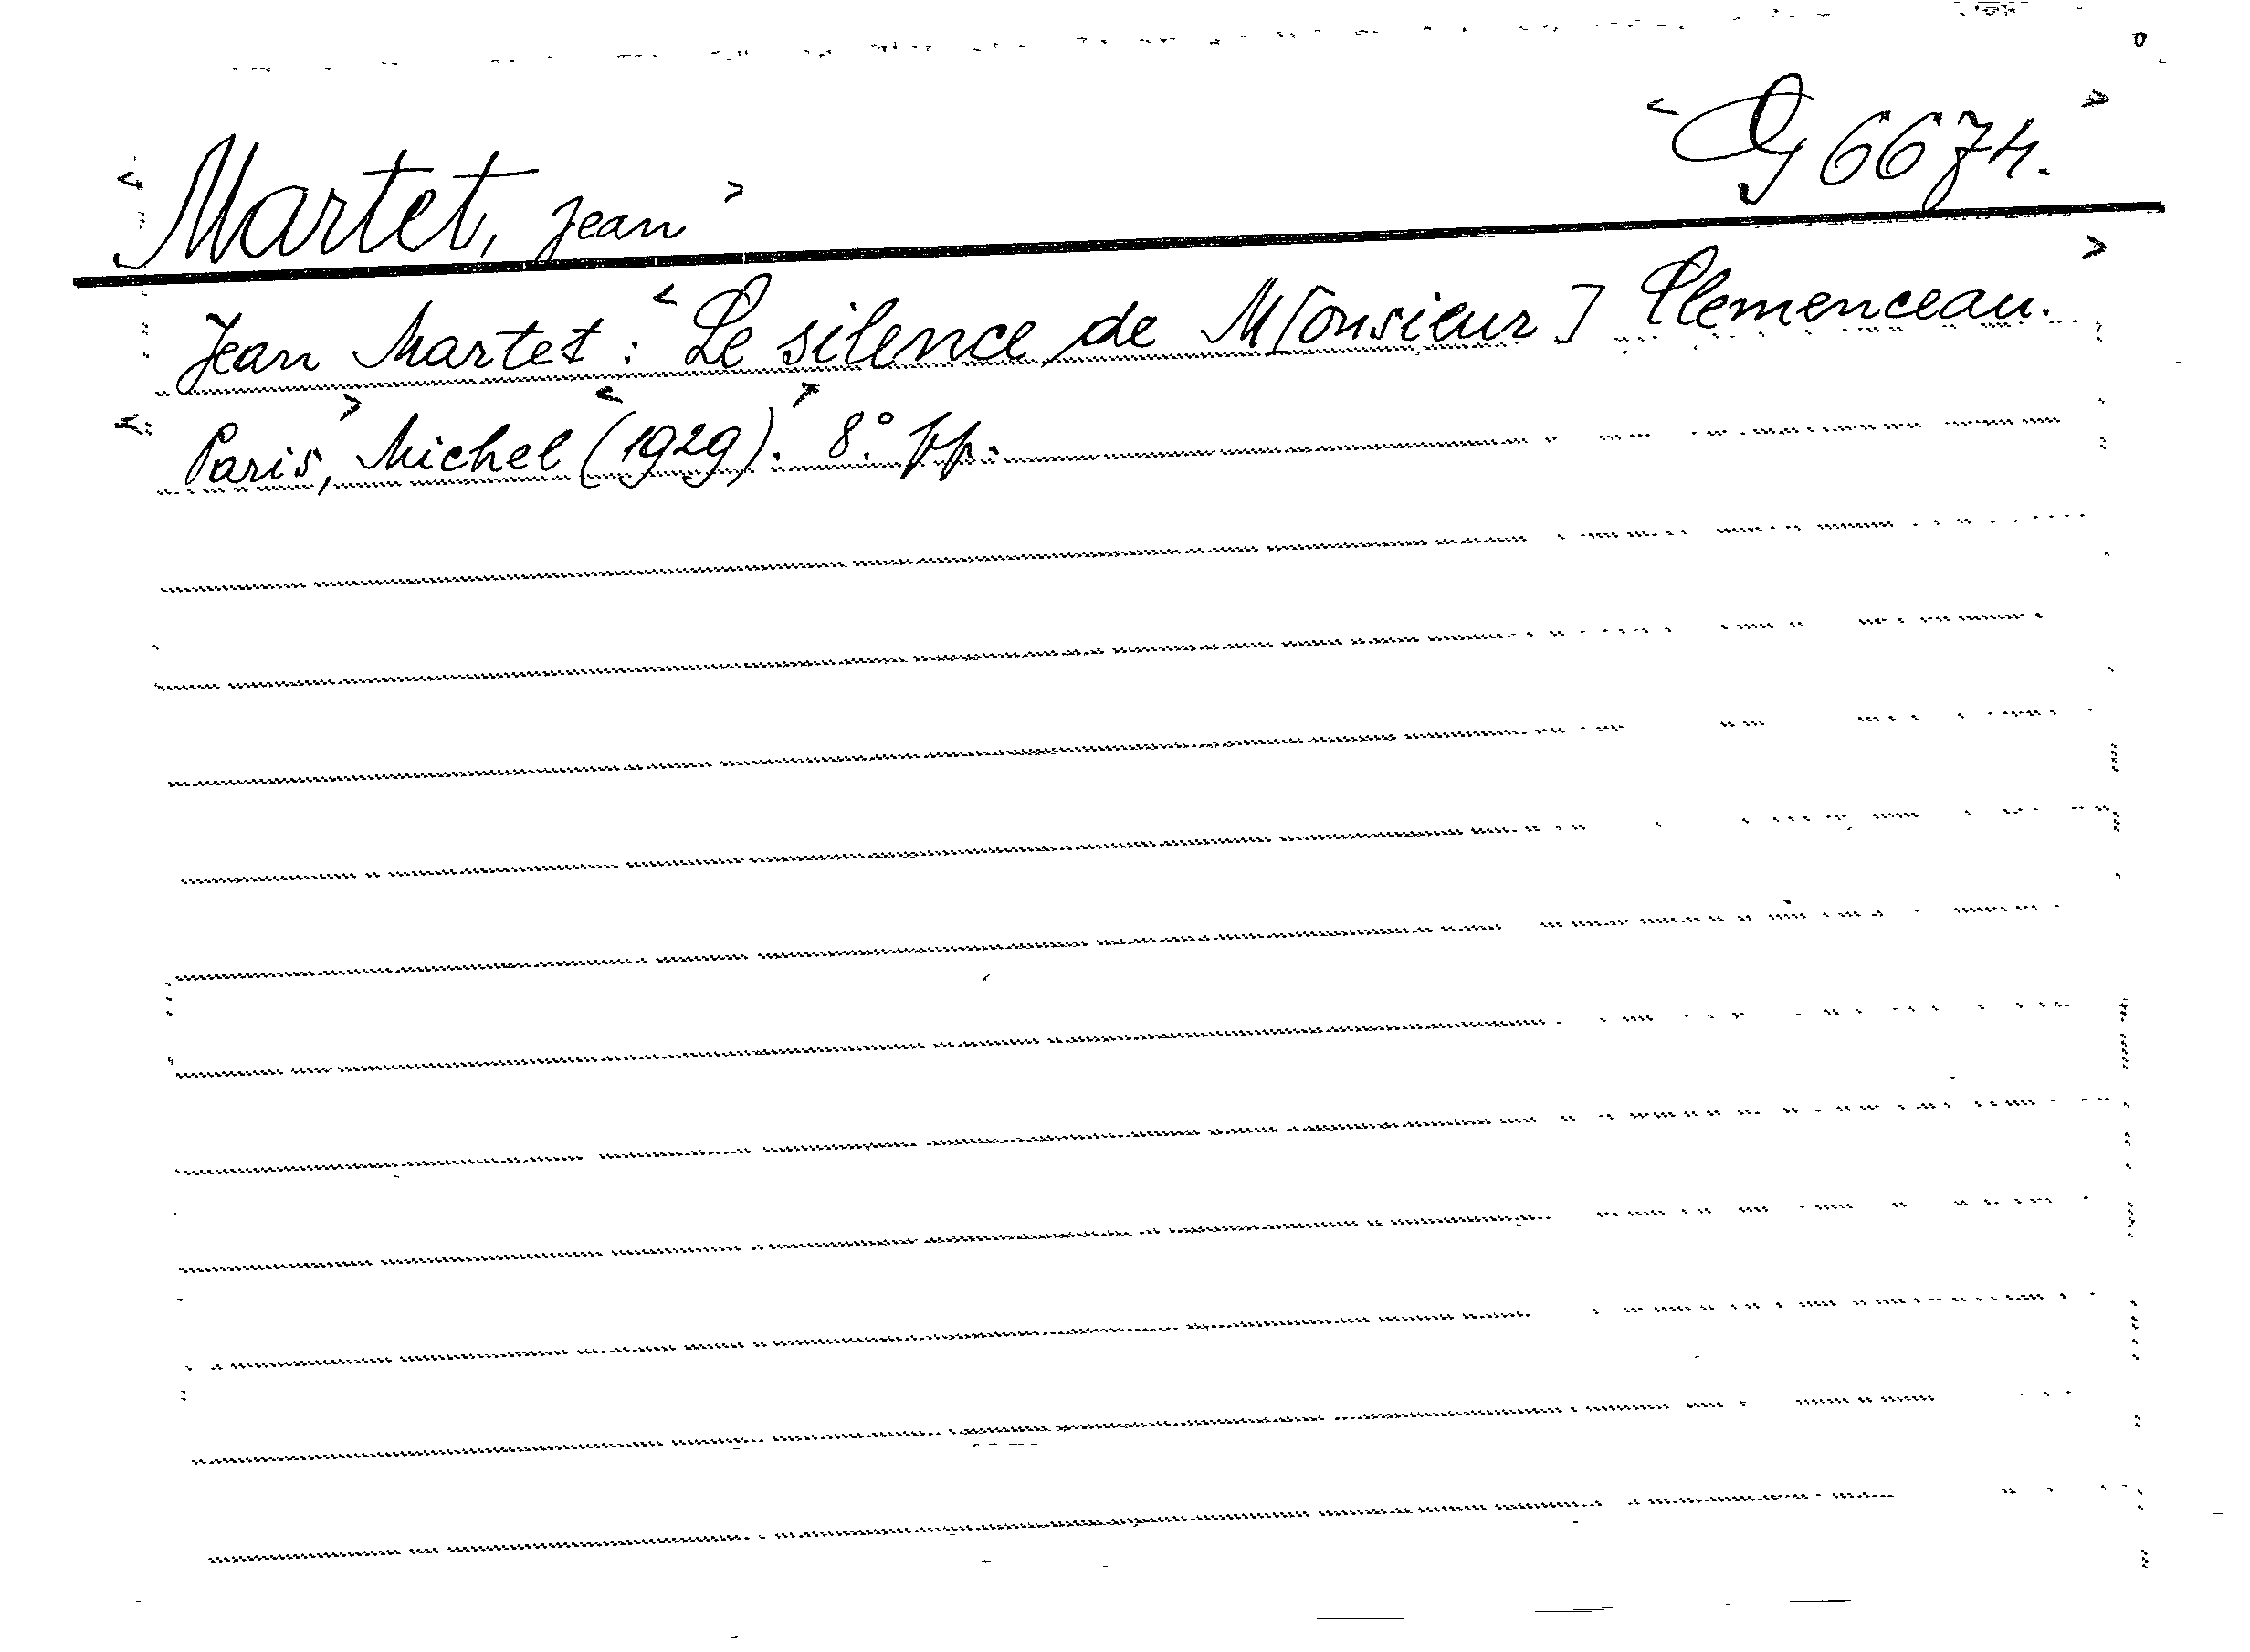 <Martet, Jean>
<Og 6674.>
Jean Martet: <Le silence de M[onsieur] Clemenceau.>
<Paris,> Michel <(1929).> 8°. pp.